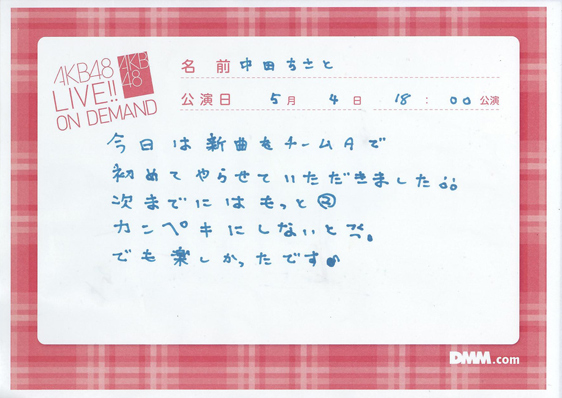 AKB48
LIVE!!
ON DEMAND
AKB
48
名前 中田ちさと
公演日 5月 4日 18:00公演
今日は新曲をチームAで
初めてやらせていただきました
次までにはもっと②
カンペキにしないと
でも楽しかったです♪
DMM.com